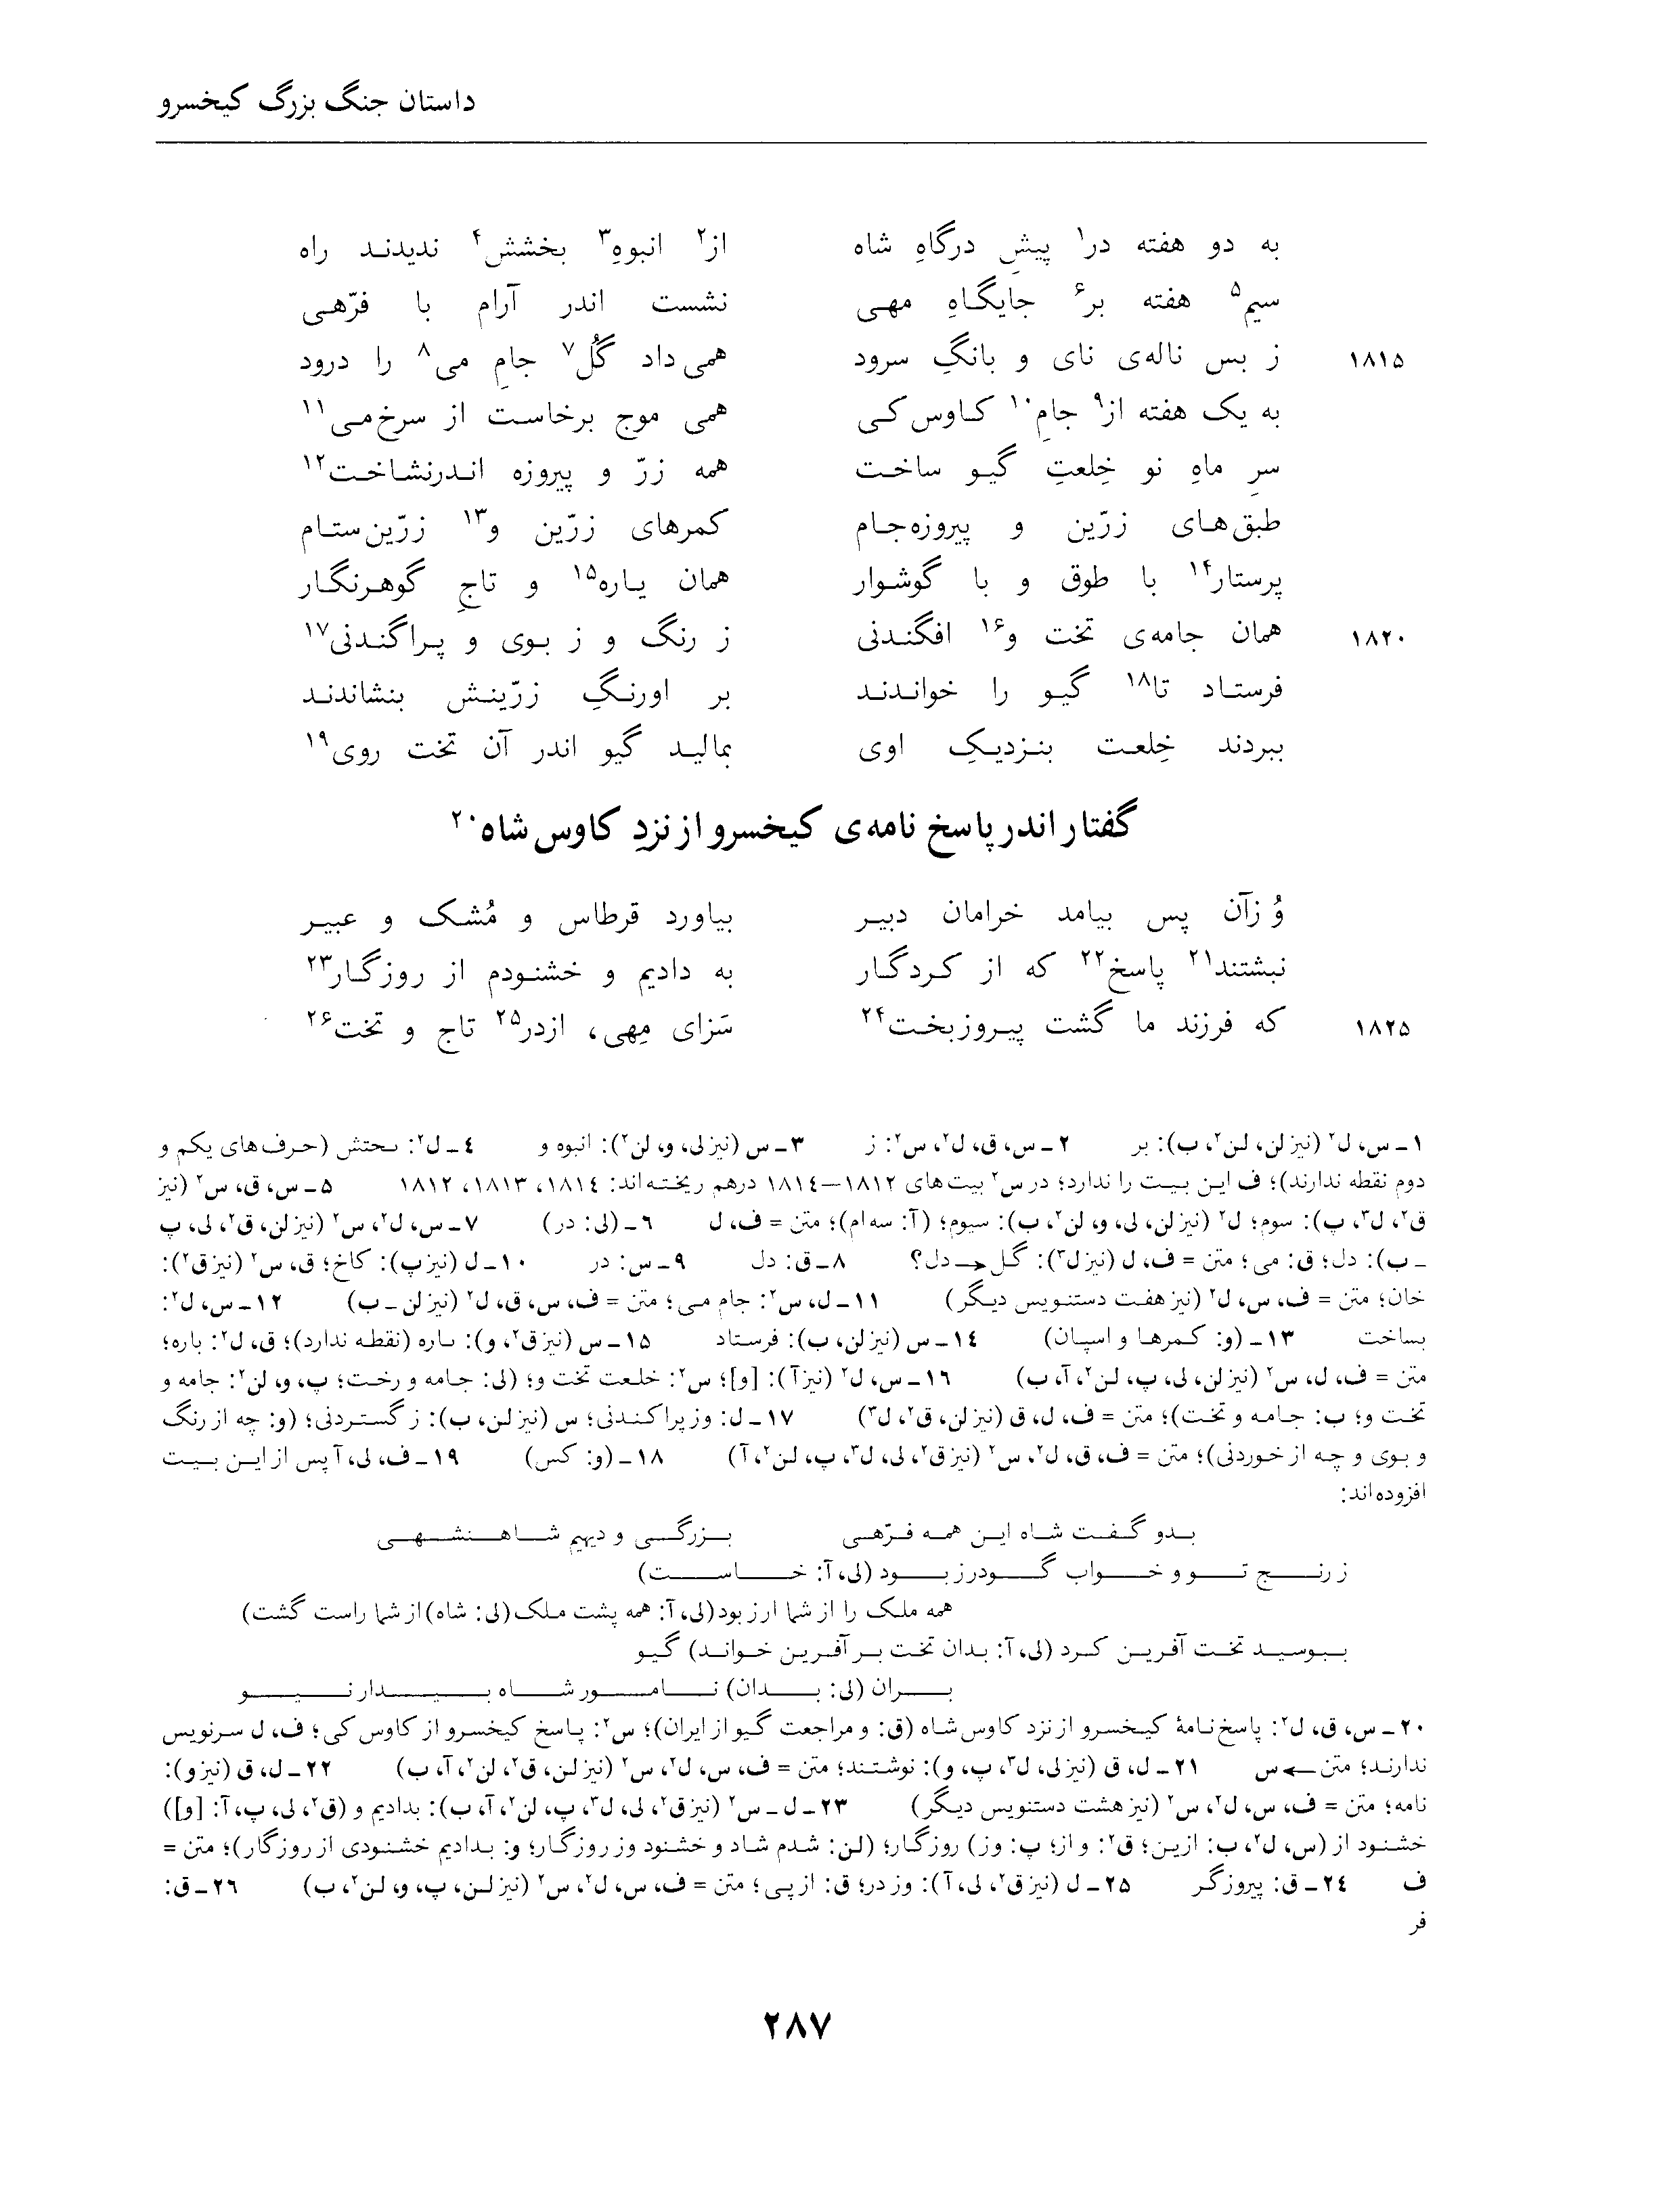 داستان جنگ بزرگ کیخسرو
به دو هفته در۱ پیشِ درگاهِ شاه از۲ انبوهِ۳ بخشش۴ ندیدند راه
سیم۵ هفته بر۶ جایگاهِ مهی نشست اندر آرام با فرّهی
۱۸۱۵ ز بس ناله‌ی نای و بانگِ سرود همی داد گُل۷ جامِ می۸ را درود
به یک هفته از۹ جامِ۱۰ کاوس کی همی موج برخاست از سرخ‌می۱۱
سرِ ماهِ نو خِلعتِ گیو ساخت همه زرّ و پیروزه اندرنشاخت۱۲
طبق‌های زرّین و پیروزه‌جام کمرهای زرّین و۱۳ زرّین‌ستام
پرستار۱۴ با طوق و با گوشوار همان یاره۱۵ و تاجِ گوهرنگار
۱۸۲۰ همان جامه‌ی تخت و۱۶ افگندنی ز رنگ و ز بوی و پراگندنی۱۷
فرستاد تا۱۸ گیو را خواندند بر اورنگِ زرّینش بنشاندند
ببردند خِلعت بنزدیکِ اوی بمالید گیو اندر آن تخت روی۱۹
گفتار اندر پاسخ نامه‌ی کیخسرو از نزدِ کاوس شاه۲۰
وُ زآن پس بیامد خرامان دبیر بیاورد قرطاس و مُشک و عبیر
نبشتند۲۱ پاسخ۲۲ که از کردگار به دادیم و خشنودم از روزگار۲۳
۱۸۲۵ که فرزند ما گشت پیروزبخت۲۴ سَزای مِهی، ازدر۲۵ تاج و تخت۲۶
۱ـ س، ل۲ (نیز لن، لن۲، ب): بر ۲ـ س، ق، ل۲، س۲: ز ۳ـ س (نیز لی، و، لن۲): انبوه و ۴ـ ل۲: ٮحتش (حرف‌های یکم و
دوم نقطه ندارند)؛ ف این بیت را ندارد؛ در س۲ بیت‌های ۱۸۱۲—۱۸۱۴ درهم ریخته‌اند: ۱۸۱۴، ۱۸۱۳، ۱۸۱۲ ۵ـ س، ق، س۲ (نیز
ق۲، ل۳، پ): سوم؛ ل۲ (نیز لن، لی، و، لن۲، ب): سیوم؛ (آ: سه‌ام)؛ متن = ف، ل ۶ـ (لی: در) ۷ـ س، ل۲، س۲ (نیز لن، ق۲، لی، پ
ـ ب): دل؛ ق: می؛ متن = ف، ل (نیز ل۳): گل ← دل؟ ۸ـ ق: دل ۹ـ س: در ۱۰ـ ل (نیز پ): کاخ؛ ق، س۲ (نیز ق۲):
خان؛ متن = ف، س، ل۲ (نیز هفت دستنویس دیگر) ۱۱ـ ل، س۲: جام می؛ متن = ف، س، ق، ل۲ (نیز لن ـ ب) ۱۲ـ س، ل۲:
بساخت ۱۳ـ (و: کمرها و اسپان) ۱۴ـ س (نیز لن، ب): فرستاد ۱۵ـ س (نیز ق۲، و): ٮاره (نقطه ندارد)؛ ق، ل۲: باره؛
متن = ف، ل، س۲ (نیز لن، لی، پ، لن۲، آ، ب) ۱۶ـ س، ل۲ (نیز آ): [و]؛ س۲: خلعت تخت و؛ (لی: جامه و رخت؛ پ، و، لن۲: جامه و
تخت و؛ ب: جامه و تخت)؛ متن = ف، ل، ق (نیز لن، ق۲، ل۳) ۱۷ـ ل: وز پراکندنی؛ س (نیز لن، ب): ز گستردنی؛ (و: چه از رنگ
و بوی و چه از خوردنی)؛ متن = ف، ق، ل۲، س۲ (نیز ق۲، لی، ل۳، پ، لن۲، آ) ۱۸ـ (و: کس) ۱۹ـ ف، لی، آ پس از این بیت
افزوده‌اند:
بدو گفت شاه این همه فرّهی بزرگی و دیهیم شاهنشهی
ز رنج تو و خواب گودرز بود (لی، آ: خاست)
همه ملک را از شما ارز بود (لی، آ: همه پشت ملک (لی: شاه) از شما راست گشت)
ببوسید تخت آفرین کرد (لی، آ: بدان تخت بر آفرین خواند) گیو
بران (لی: بدان) نامور شاه بیدار نیو
۲۰ـ س، ق، ل۲: پاسخ نامهٔ کیخسرو از نزد کاوس شاه (ق: و مراجعت گیو از ایران)؛ س۲: پاسخ کیخسرو از کاوس کی؛ ف، ل سرنویس
ندارند؛ متن ← س ۲۱ـ ل، ق (نیز لی، ل۳، پ، و): نوشتند؛ متن = ف، س، ل۲، س۲ (نیز لن، ق۲، لن۲، آ، ب) ۲۲ـ ل، ق (نیز و):
نامه؛ متن = ف، س، ل۲، س۲ (نیز هشت دستنویس دیگر) ۲۳ـ ل ـ س۲ (نیز ق۲، لی، ل۳، پ، لن۲، آ، ب): بدادیم و (ق۲، لی، پ، آ: [و])
خشنود از (س، ل۲، ب: ازین؛ ق۲: و از؛ پ: وز) روزگار؛ (لن: شدم شاد و خشنود وز روزگار؛ و: بدادیم خشنودی از روزگار)؛ متن =
ف ۲۴ـ ق: پیروزگر ۲۵ـ ل (نیز ق۲، لی، آ): وز در؛ ق: از پی؛ متن = ف، س، ل۲، س۲ (نیز لن، پ، و، لن۲، ب) ۲۶ـ ق:
فر
۲۸۷